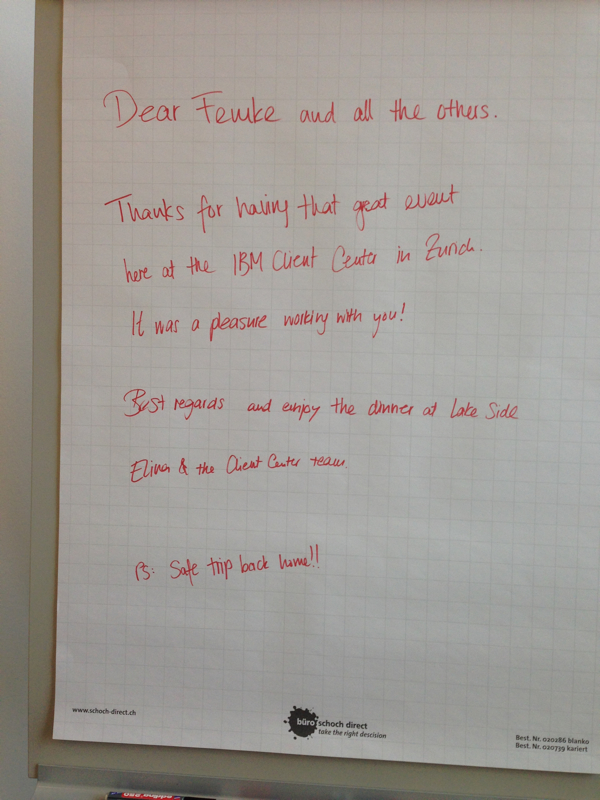 Dear Femke and all the others.
Thanks for having that great event
here at the IBM Client Center in Zurich.
It was a pleasure working with you!
Best regards and enjoy the dinner at Lake Side
Elina & the Client Center team.
Ps: Safe trip back home!!
www.schoch-direct.ch
büro schoch direct
take the right descision
Best. Nr. 020286 blanko
Best. Nr. 020739 kariert